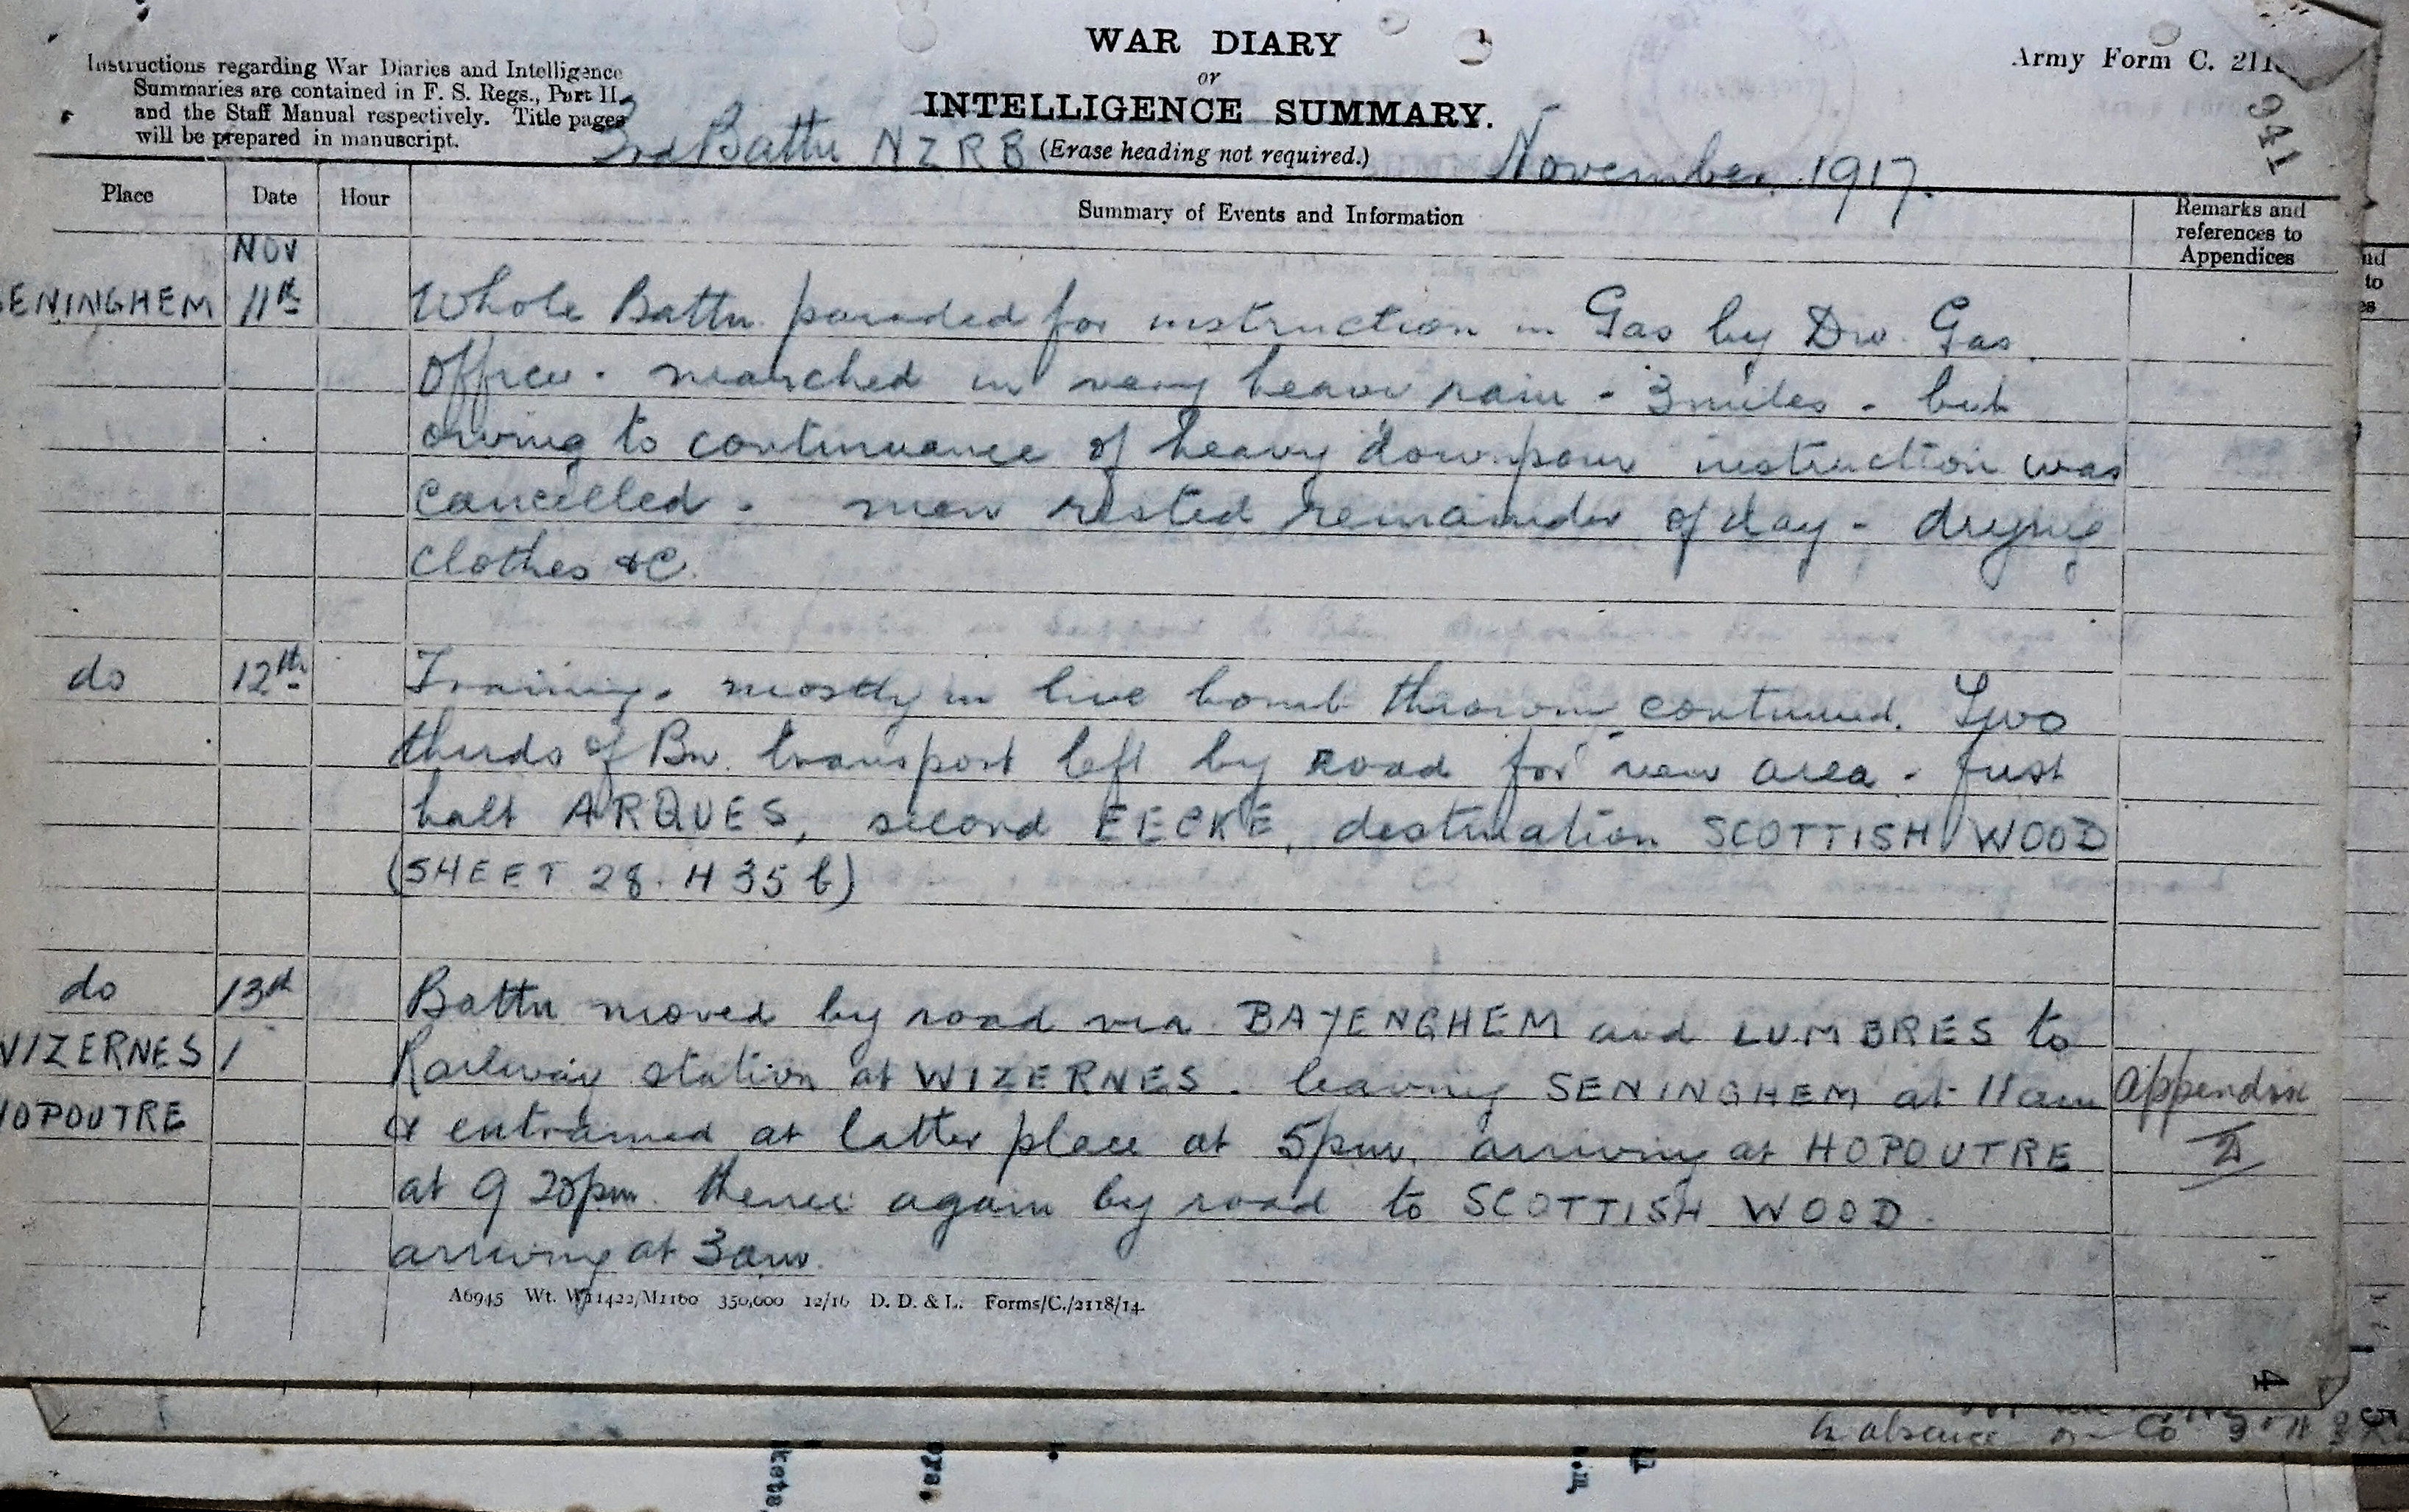 WAR DIARY
or
INTELLIGENCE SUMMARY.
(Erase heading not required.)
Army Form C. 211
Instructions regarding War Diaries and Intelligence
Summaries are contained in F. S. Regs., Part II.
and the Staff Manual respectively. Title pages
will be prepared in manuscript.
3rd Battn NZRB
November. 1917.
941
Place
Date
Hour
Summary of Events and Information
Remarks and
references to
Appendices
NOV
SENINGHEM 11th Whole Battn. paraded for instruction in Gas by Div. Gas.
Officer. marched in very heavy rain - 3 miles - but
owing to continuance of heavy downpour instruction was
cancelled. men rested remainder of day - drying
clothes &c.
do 12th Training. mostly in live bomb throwing continued. Two
thirds of Bn. transport left by road for new area. first
halt ARQUES, second EECKE, destination SCOTTISH WOOD
(SHEET 28. H 35 b)
do 13th Battn moved by road via BAYENGHEM and LUMBRES to
WIZERNES / Railway station at WIZERNES. leaving SENINGHEM at 11am Appendix
HOPOUTRE & entrained at latter place at 5pm. arriving at HOPOUTRE
at 9 20pm. thence again by road to SCOTTISH WOOD.
arriving at 3am.
A6945 Wt. W11422/M1160 350,000 12/16 D. D. & L. Forms/C./2118/14.
4
in absence